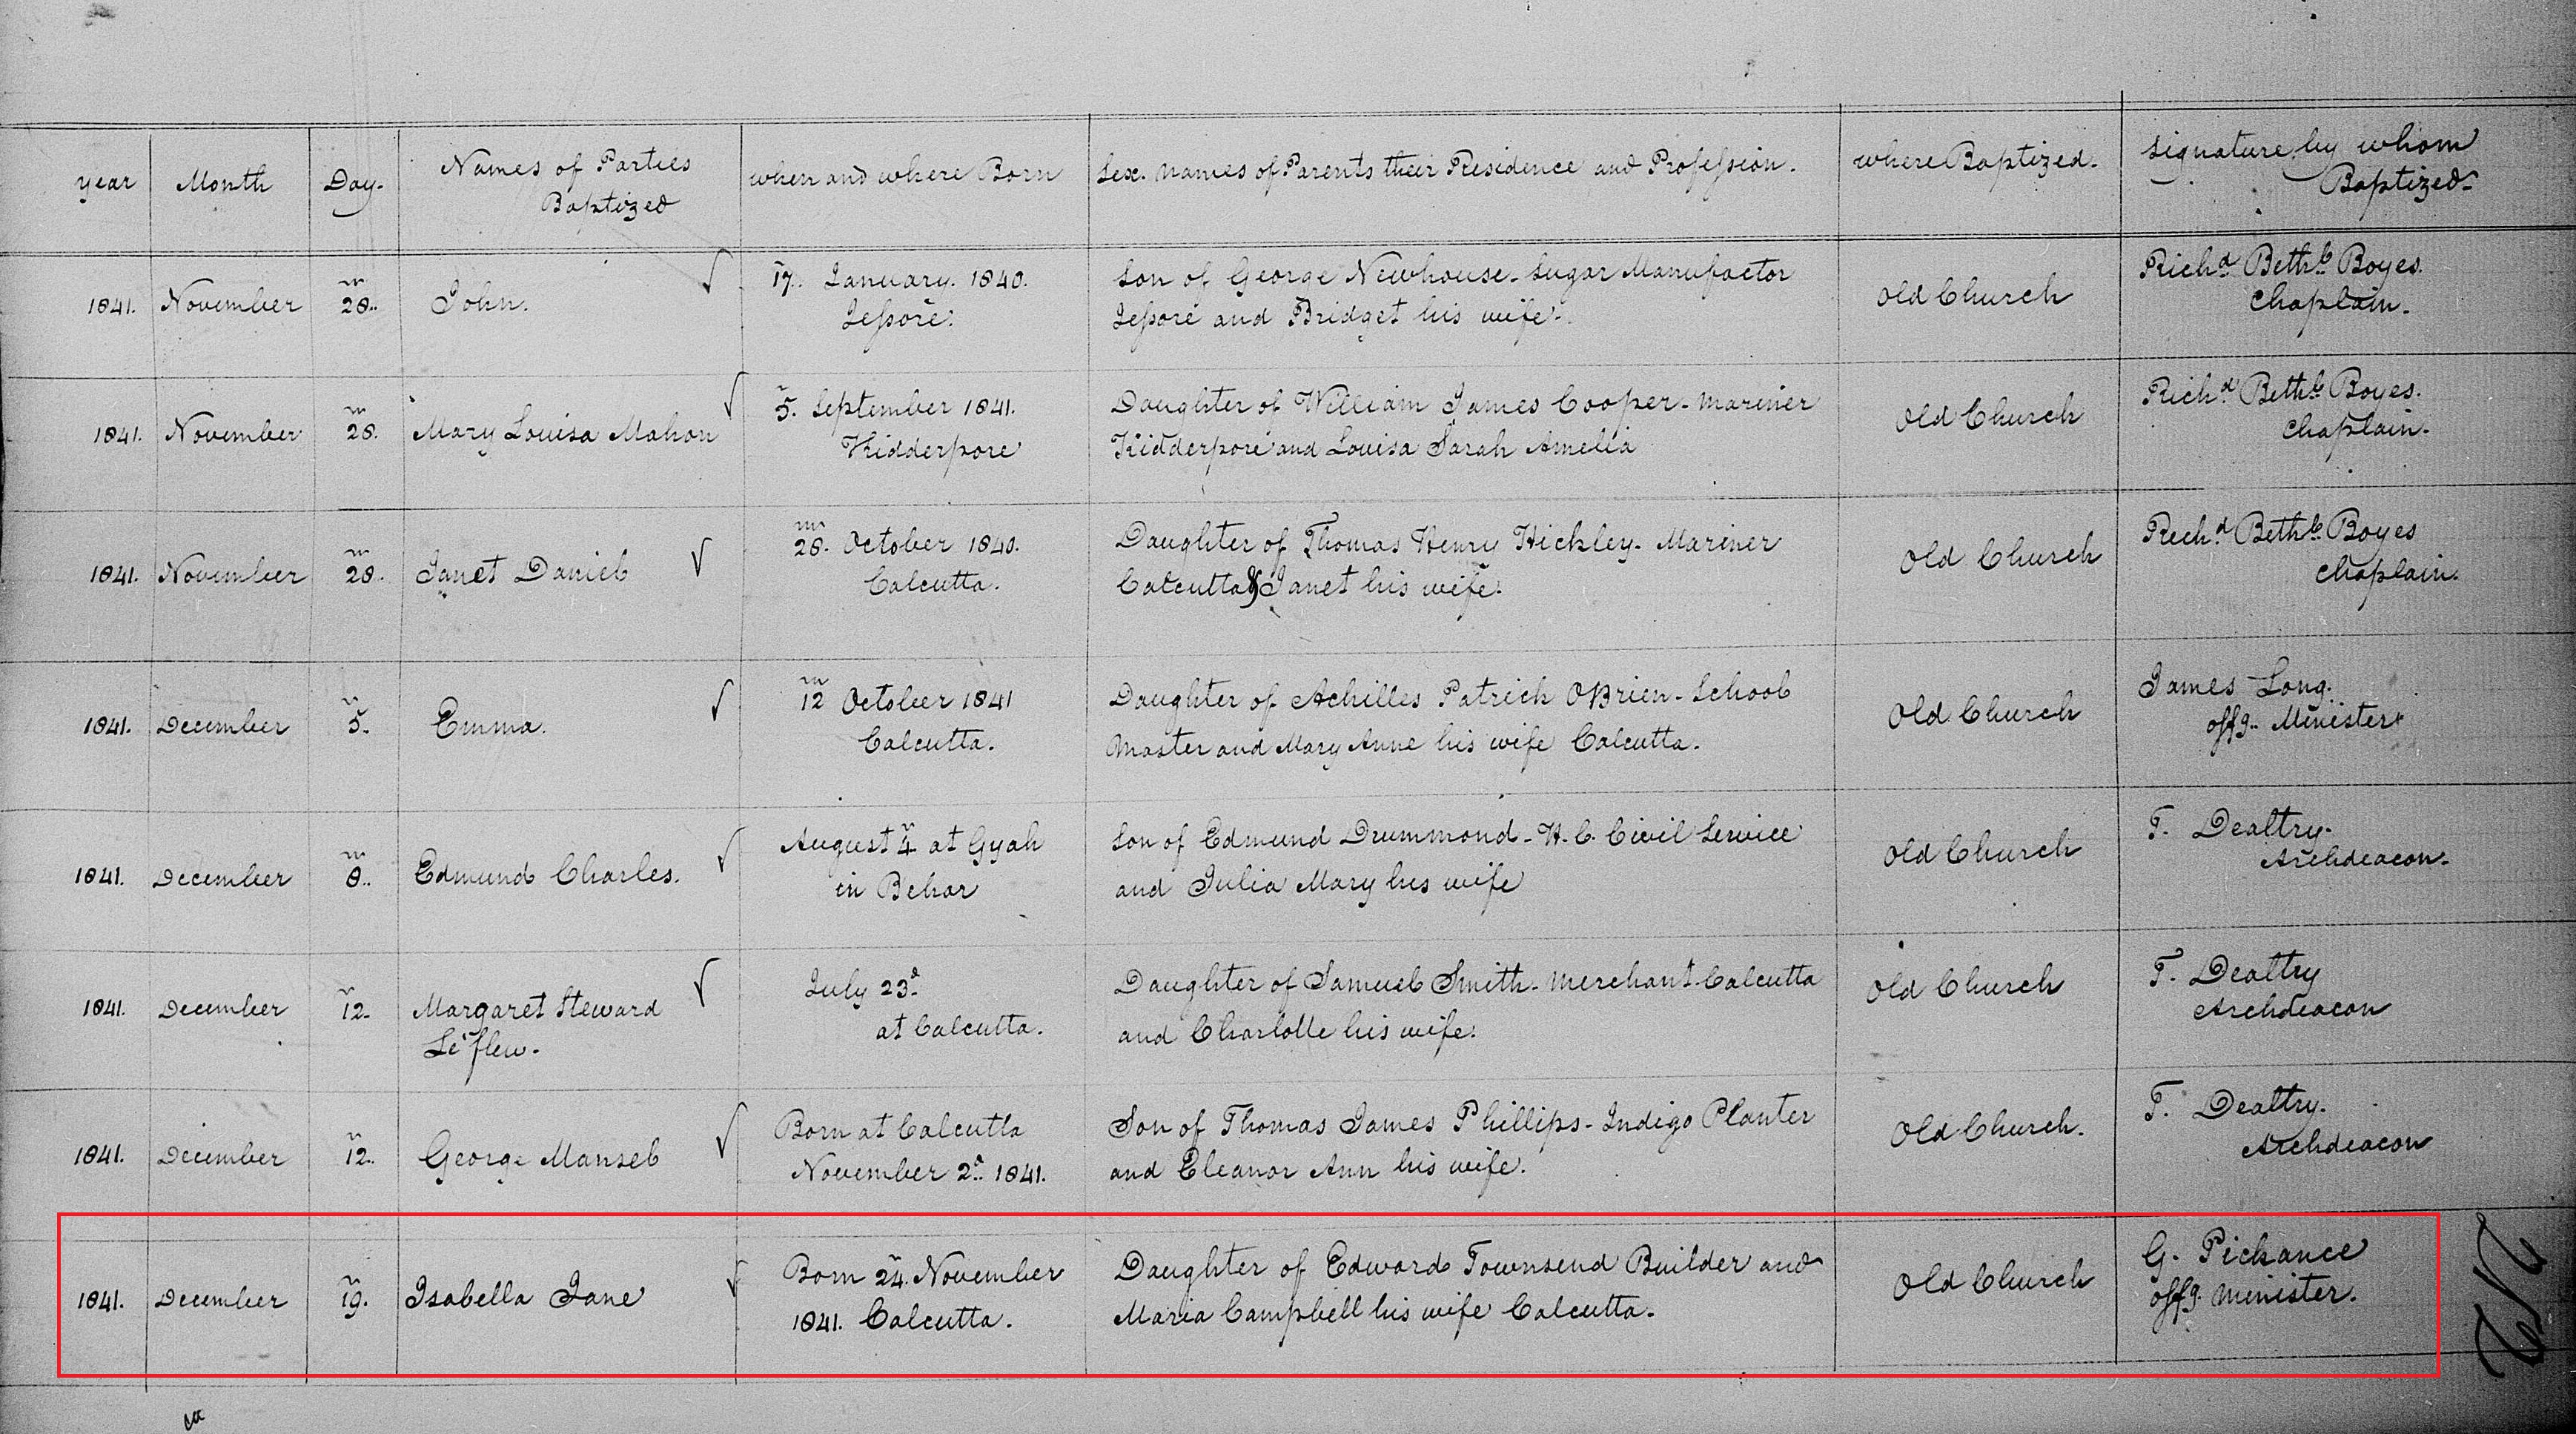 year Month Day. Names of Parties Baptized when and where Born Sex. names of Parents their Residence and Profession. where Baptized. signature by whom Baptized.
1841. November 28. John. 17. January. 1840. Son of George Newhouse - Sugar Manufactor Old Church Richd Bethl Boyes.
Jessore. Jessore and Bridget his wife. Chaplain.
1841. November 28. Mary Louisa Mahon 5. September 1841. Daughter of William James Cooper - Mariner Old Church Richd Bethl Boyes.
Kidderpore Kidderpore and Louisa Sarah Amelia Chaplain.
1841. November 28. Janet Daniel 28. October 1840. Daughter of Thomas Henry Hickley - Mariner Old Church Richd Bethl Boyes
Calcutta. Calcutta & Janet his wife. Chaplain.
1841. December 5. Emma. 12 October 1841 Daughter of Achilles Patrick OBrien - School Old Church James Long.
Calcutta. Master and Mary Anne his wife Calcutta. offg. Minister
1841. December 8. Edmund Charles. August 4 at Gyah Son of Edmund Drummond - H. C. Civil Service Old Church T. Dealtry.
in Behar and Julia Mary his wife Archdeacon.
1841. December 12. Margaret Steward July 23d Daughter of Samuel Smith - Merchant Calcutta Old Church T. Dealtry
at Calcutta. and Charlotte his wife. Archdeacon
1841. December 12. George Mansel Born at Calcutta Son of Thomas James Phillips - Indigo Planter Old Church. T. Dealtry.
November 2d 1841. and Eleanor Ann his wife. Archdeacon
1841. December 19. Isabella Jane Born 24. November Daughter of Edward Townsend Builder and Old Church G. Pickance
1841. Calcutta. Maria Campbell his wife Calcutta. offg. minister.